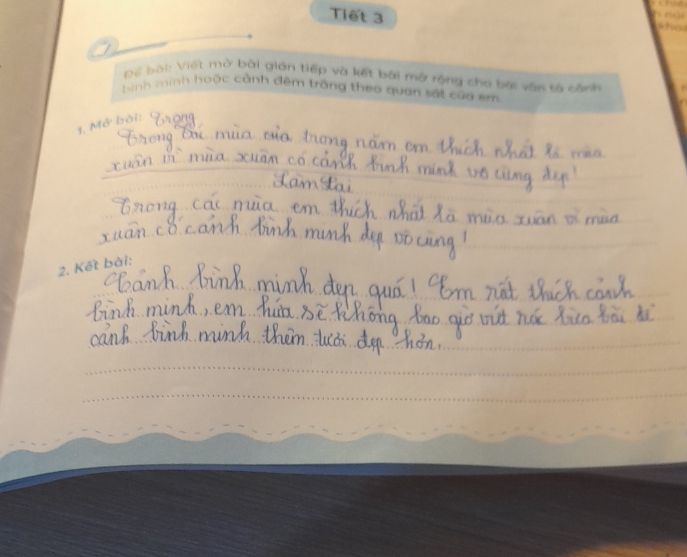 Tiết 3
Đề bài: Viết mở bài gián tiếp và kết bài mở rộng cho bài văn tả cảnh
bình minh hoặc cảnh đêm trăng theo quan sát của em.
1. Mở bài: Trong
Trong các mùa của trong năm em thích nhất là mùa
xuân vì mùa xuân có cảnh bình minh vô cùng đẹp!
Làm lại
Trong các mùa em thích nhất là mùa xuân vì mùa
xuân có cảnh bình minh đẹp vô cùng!
2. Kết bài:
Cảnh bình minh đẹp quá! Em rất thích cảnh
bình minh, em hứa sẽ không bao giờ vứt rác bừa bãi để
cảnh bình minh thêm tươi đẹp hơn.